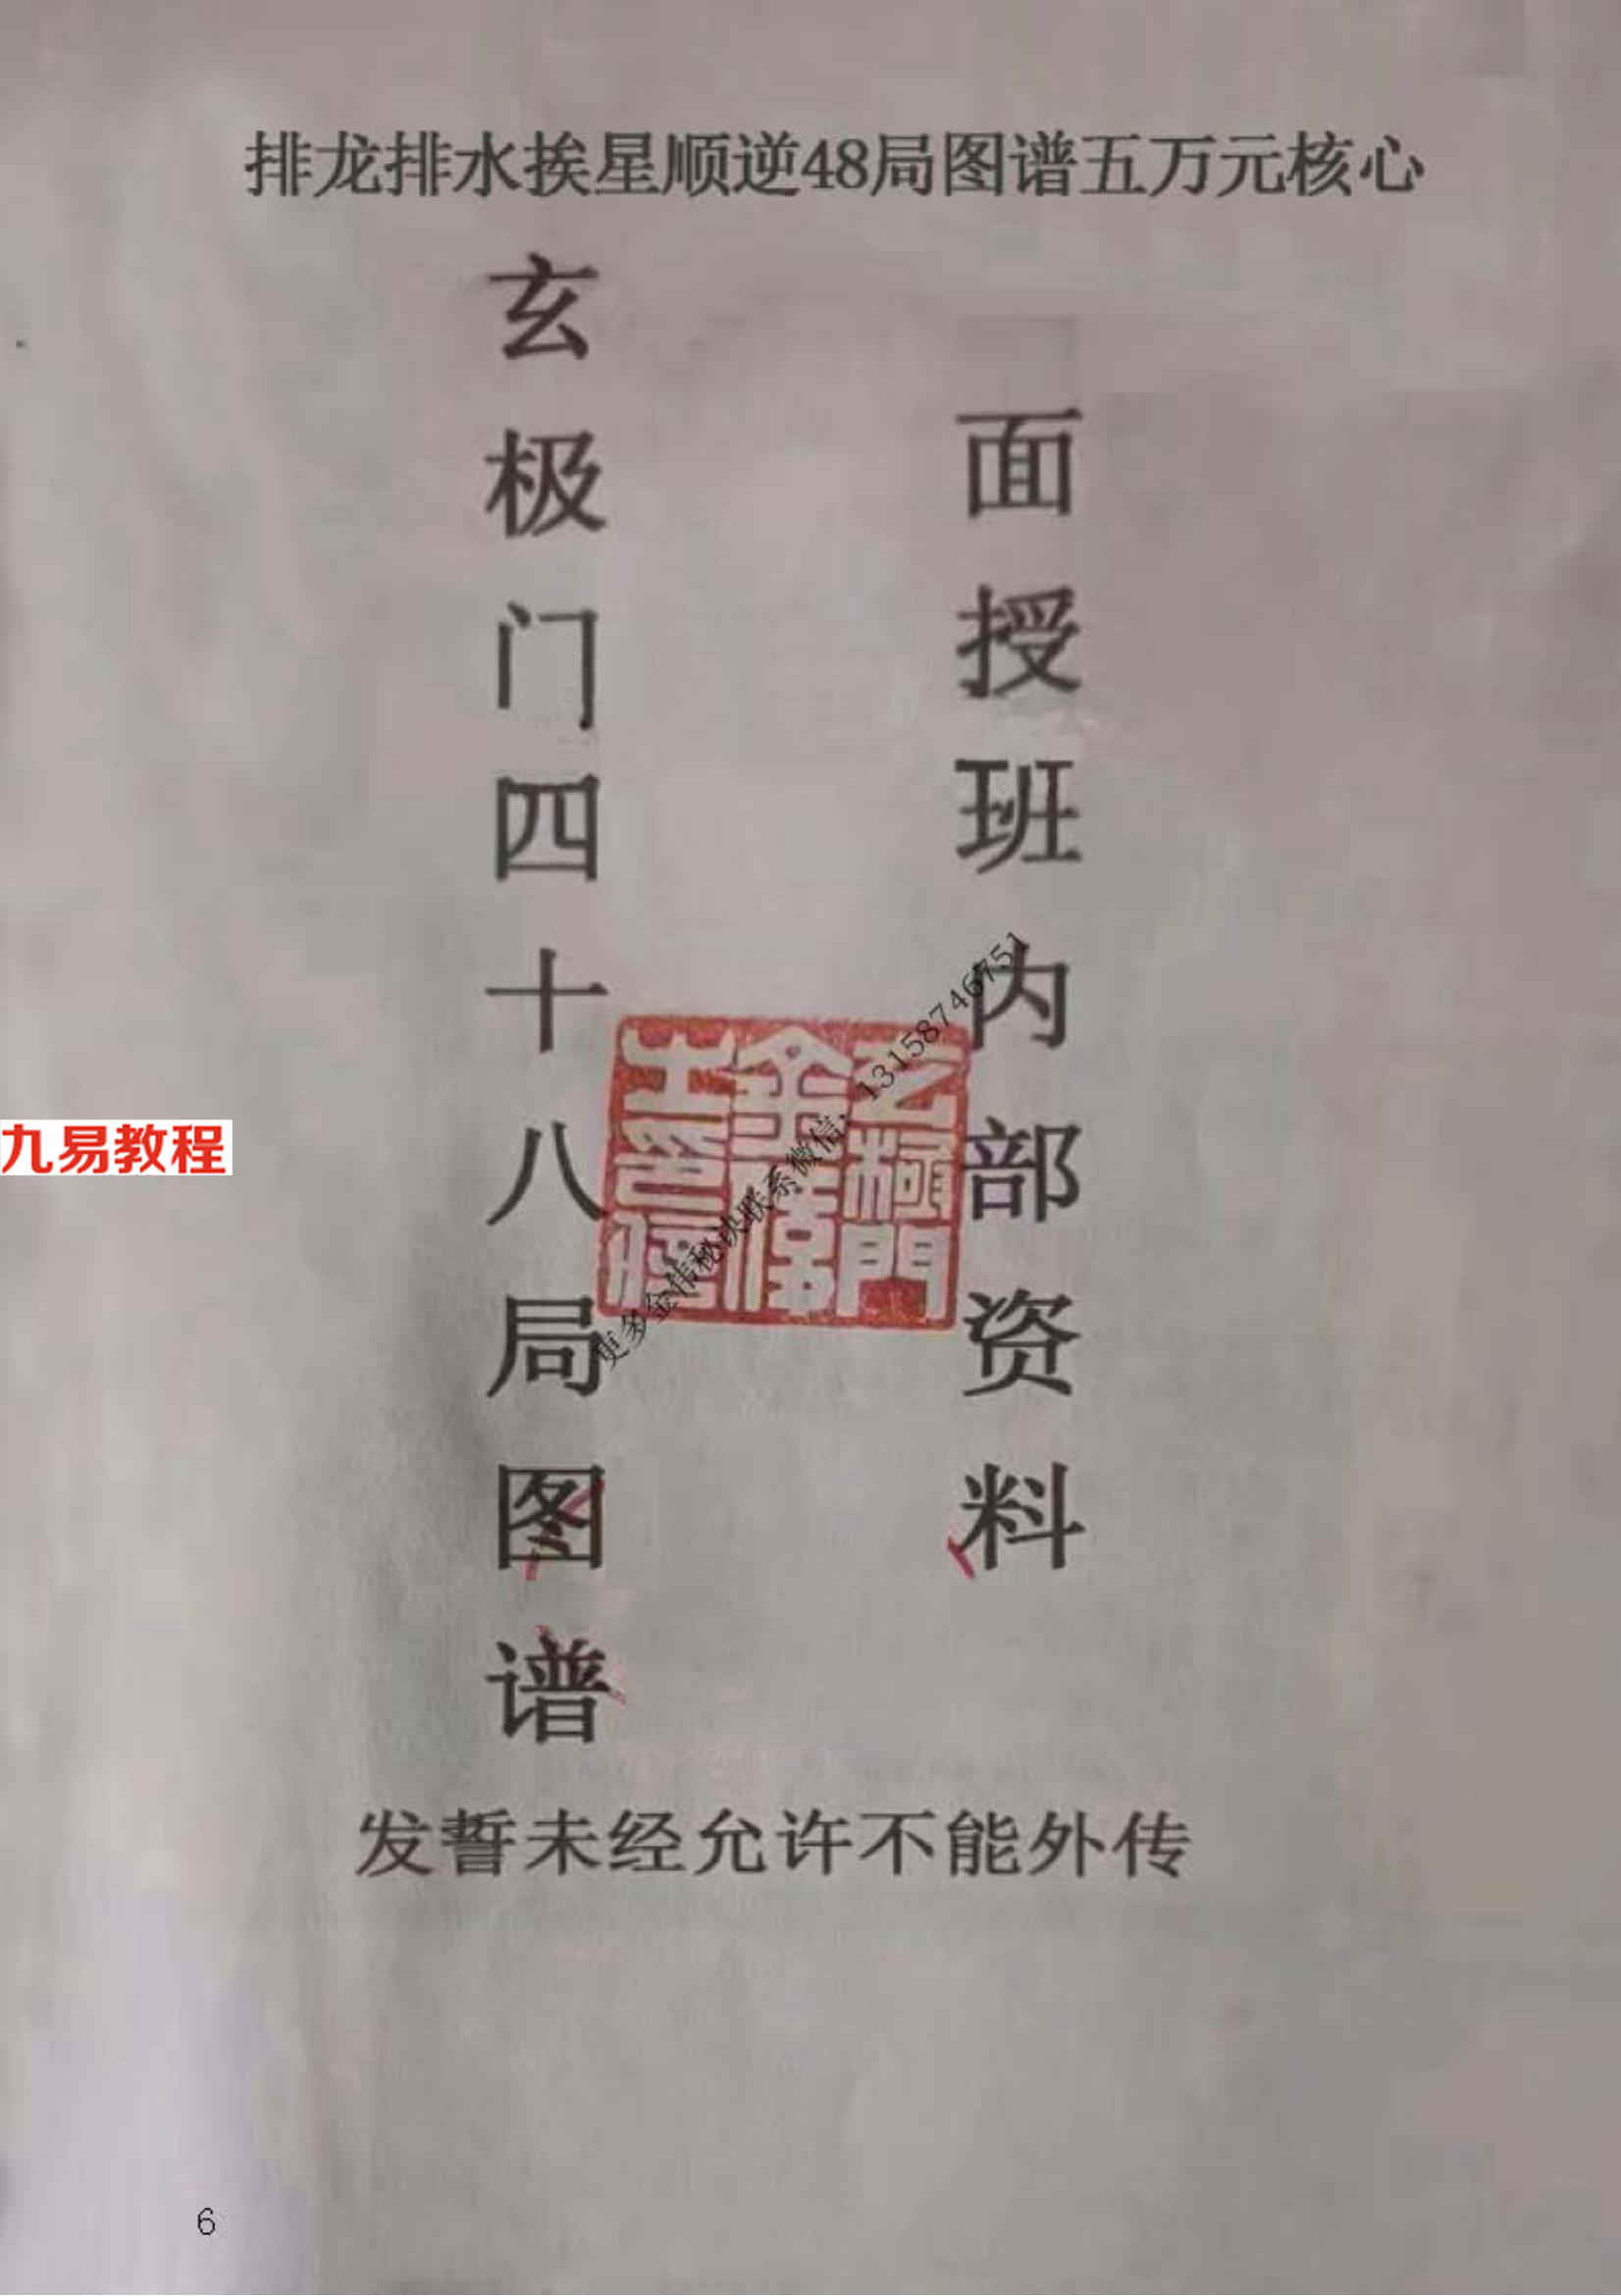 排龙排水挨星顺逆48局图谱五万元核心
玄极门四十八局图谱
面授班内部资料
更多金伟秘诀联系微信：13158746751
九易教程
玄極門
发誓未经允许不能外传
6